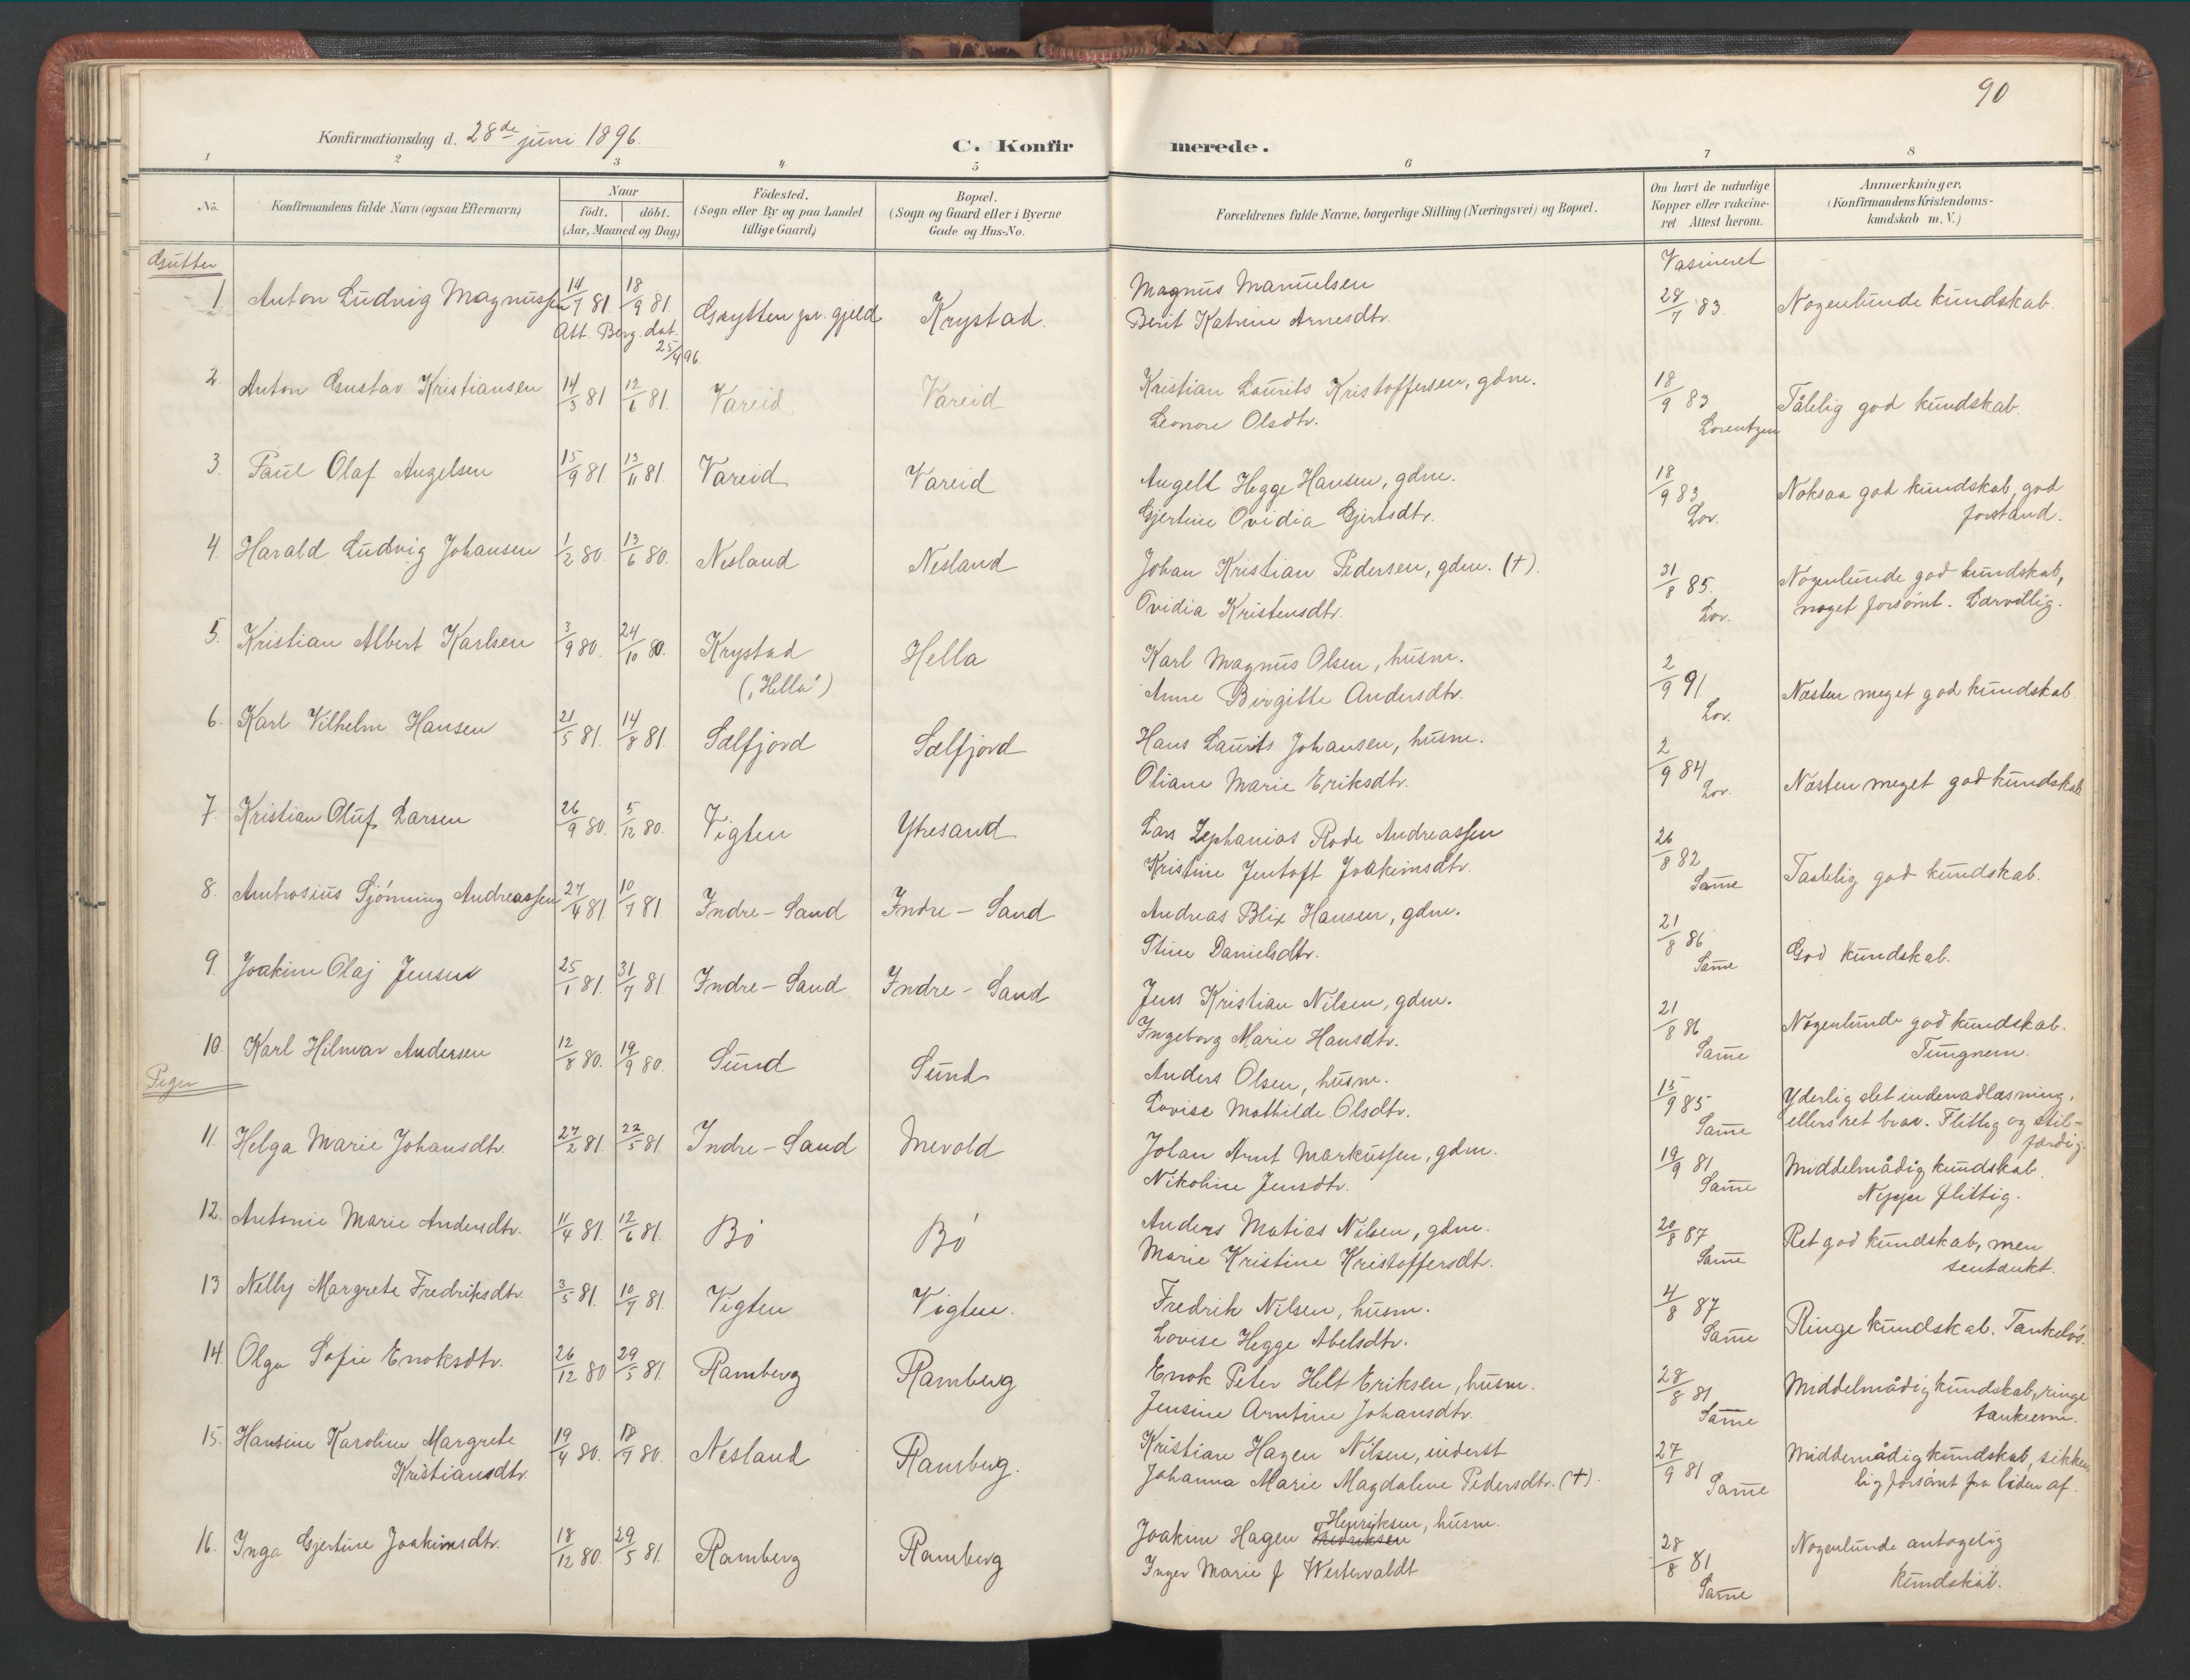 90
Konfirmationsdag d. 28de juni 1896.
C. Konfirmerede.
1 2 3 4 5 6 7 8
No. Konfirmandens fulde Navn (ogsaa Efternavn) Naar födt. döbt. (Aar, Maaned og Dag) Födested. (Sogn eller By og paa Landet tillige Gaard) Bopæl. (Sogn og Gaard eller i Byerne Gade og Hus-No. Forældrenes fulde Navne, borgerlige Stilling (Næringsvei) og Bopæl. Om havt de naturlige Kopper eller vakcineret Attest herom. Anmærkninger. (Konfirmandens Kristendomskundskab m. V.)
Gutter
Vasineret
1. Anton Ludvig Magnussen 14/7 81 18/9 81 pr. gjeld Krystad. Magnus Manuelsen 28/7 83. Nogenlunde kundskab.
Att. Berg. dat. 25/4 96 Berit Katrine Arnesdtr.
2. Anton Gustav Kristiansen 14/3 81 12/6 81. Vareid Vareid Kristian Laurits Kristoffersen, gdm. 18/9 83 Tålelig god kundskab.
Leonore Olsdtr. Lorentzen
3. Paul Olaf Angelsen 15/9 81 13/11 81. Vareid Vareid Angell Hegge Hansen, gdm. 18/9 83 Noksaa god kundskab, god
Gjertine Ovidia Gjertsdtr. Lor. forstand.
4. Harald Ludvig Johansen 1/2 80. 13/6 80. Nesland Nesland Johan Kristian Pedersen, gdm. (†). 31/8 85. Nogenlunde god kundskab,
Ovidia Kristensdtr. Lor. noget forsömt. Lærvillig.
5. Kristian Albert Karlsen 3/9 80. 24/10 80. Krystad Hella Karl Magnus Olsen, husm. 2/9 91. Næsten meget god kundskab
("Hella") Anne Birgitte Andersdtr. Lor.
6. Karl Vilhelm Hansen 21/5 81. 14/8 81. Selfjord Selfjord Hans Laurits Johansen, husm. 2/9 84 Næsten meget god kundskab
Oliane Marie Eriksdtr. Lor.
7. Kristian Oluf Larsen 26/9 80. 5/12 80. Vigten Ytresand Lars Zephanias Rode Andreassen 26/8 82 Taalelig god kundskab.
Kristine Jentoft Joakimsdtr. Same
8. Ambrosius Sjönning Andreassen 27/4 81. 10/7 81. Indre-Sand Indre-Sand Andreas Blix Hansen, gdm. 21/8 86 God kundskab.
Stine Danielsdtr. Same
9. Joakim Olaj Jensen 25/1 81. 31/7 81. Indre-Sand Indre-Sand Jens Kristian Nilsen, gdm. 21/8 86 Nogenlunde god kundskab.
Ingeborg Marie Hansdtr. Same Tungnem.
10. Karl Hilmar Andersen 12/8 80. 19/9 80. Sund Sund Anders Olsen, husm. 15/9 85 Yderlig slet indenadlæsning,
Lovise Mathilde Olsdtr. Same ellers ret brav. Flittig og stilfærdig.
Piger
11. Helga Marie Johansdtr. 27/2 81. 22/5 81. Indre-Sand Mevold Johan Arnt Markussen, gdm. 19/9 81 Middelmådig kundskab
Nikoline Jensdtr. Same Neppe flittig.
12. Antonie Marie Andersdtr. 11/4 81. 12/6 81. Bö Bö Anders Matias Nilsen, gdm. 20/8 87 Ret god kundskab, men
Marie Kristine Kristoffersdtr. Same sentænkt.
13 Nelly Margrete Fredriksdtr. 3/5 81. 10/7 81. Vigten Vigten. Fredrik Nilsen, husm. 4/8 87 Ringe kundskab. Tankelös.
Lovise Hegge Abelsdtr. Same
14. Olga Sofie Enoksdtr. 26/12 80 29/5 81. Ramberg Ramberg Enok Peter Helt Eriksen, husm. 28/8 81 Middelmådig kundskab, ringe
Jensine Arntine Johansdtr. Same tankeevne.
15. Hansine Karoline Margrete 19/4 80. 18/7 80. Nesland Ramberg. Kristian Hagen Nilsen, inderst 27/9 81 Middemådig kundskab,
Kristiansdtr. Johanna Marie Magdalene Pedersdtr. (†). Same forsömt fra liden af.
16. Inga Gjertine Joakimsdtr. 18/12 80. 29/5 81. Ramberg Ramberg Joakim Hagen Fredriksen Henriksen, husm. 28/8 81 Nogenlunde antagelig
Inger Marie f Westervaldt Same kundskab.